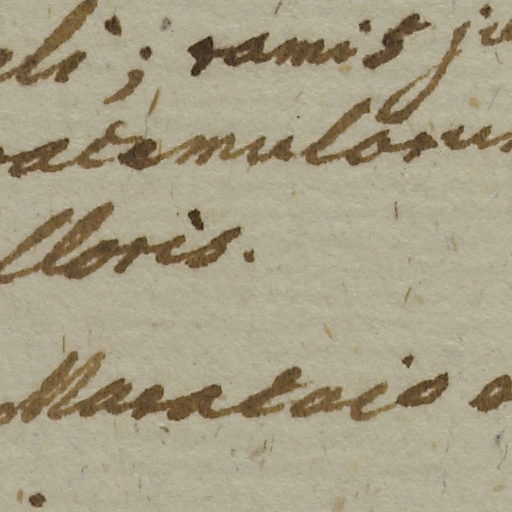 eli; ramis ju
racemulorum
lloris.
Maracaio o